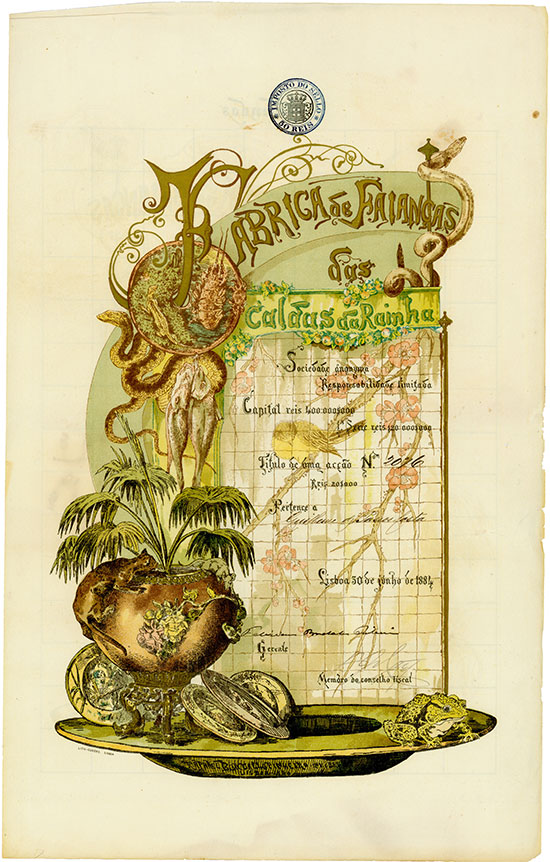 IMPOSTO DO SELLO
50 REIS
FABRICA de FAIANÇAS
das
Caldas da Rainha
Sociedade anonyma
Responsabilidade limitada
Capital reis 400.000$000
1ª Serie reis 120.000$000
Titulo de uma acção Nº 2076
Reis 20$000
Pertence a
Lisboa 30 de junho de 1884
Gerente
Membro do conselho fiscal